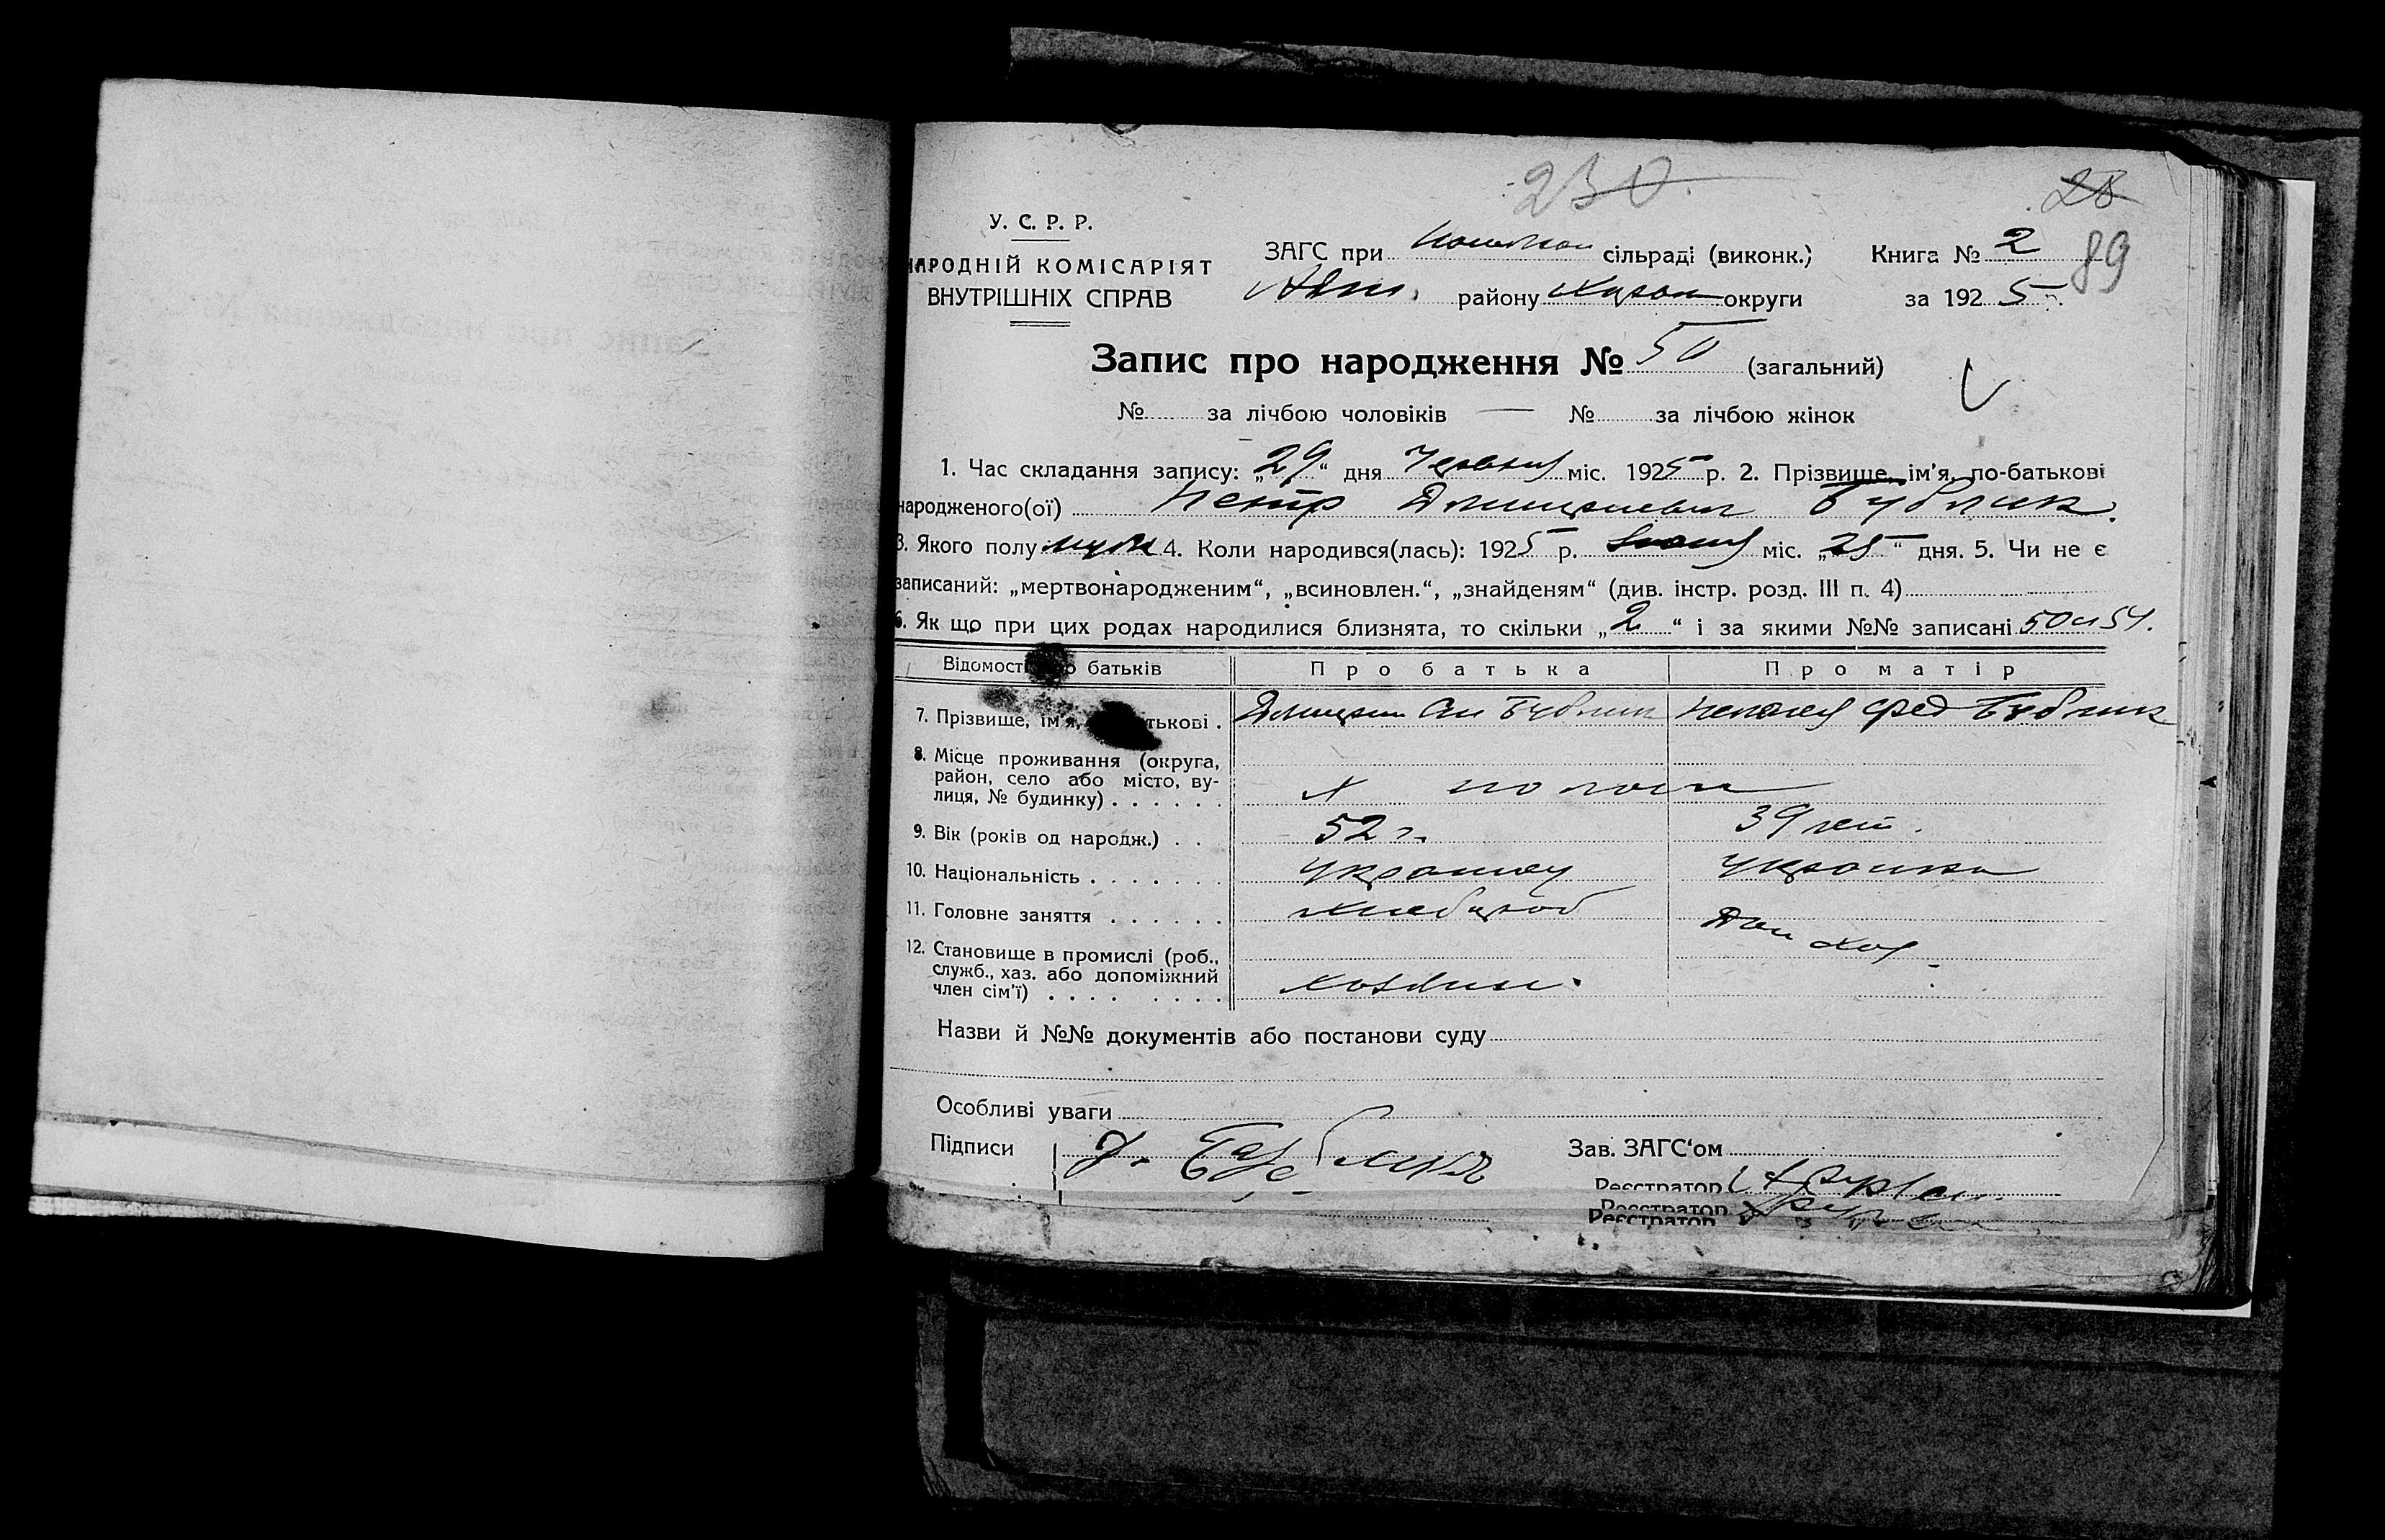 230
28
89
У. С. Р. Р.
НАРОДНІЙ КОМІСАРІЯТ
ВНУТРІШНІХ СПРАВ
ЗАГС при сільраді (виконк.)
району округи
Книга № 2
за 1925 р.
Запис про народження № 50 (загальний)
№ за лічбою чоловіків — № за лічбою жінок
1. Час складання запису: „29“ дня Червня міс. 1925 р. 2. Прізвище, ім'я, по-батькові
народженого(ої) Петр Дмитриевич Бублик.
3. Якого полу муж 4. Коли народився(лась): 1925 р. міс. „25“ дня. 5. Чи не є
записаний: „мертвонародженим“, „всиновлен.“, „знайденям“ (див. інстр. розд. III п. 4)
6. Як що при цих родах народилися близнята, то скільки „2“ і за якими №№ записані 50 и 51.
Відомості батьків
Про батька
Про матір
7. Прізвище, ім'я, тькові .
Дмитрий Бублик
Фед Бублик
8. Місце проживання (округа,
район, село або місто, ву-
лиця, № будинку) . . . . . .
9. Вік (років од народж.) . .
52 г.
39 лет.
10. Національність . . . . . . .
украинец
украинка
11. Головне заняття . . . . . .
хлебороб
Дом хоз
12. Становище в промислі (роб.,
служб., хаз. або допоміжний
член сім'ї) . . . . . . . .
хозяин.
Назви й №№ документів або постанови суду
Особливі уваги
Підписи
Зав. ЗАГС'ом
Реєстратор
Реєстратор
Реєстратор